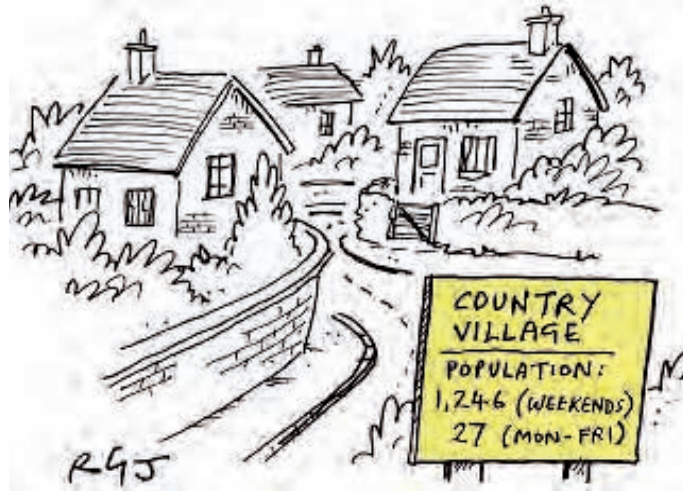 COUNTRY
VILLAGE
POPULATION:
1,246 (WEEKENDS)
27 (MON-FRI)
RGJ